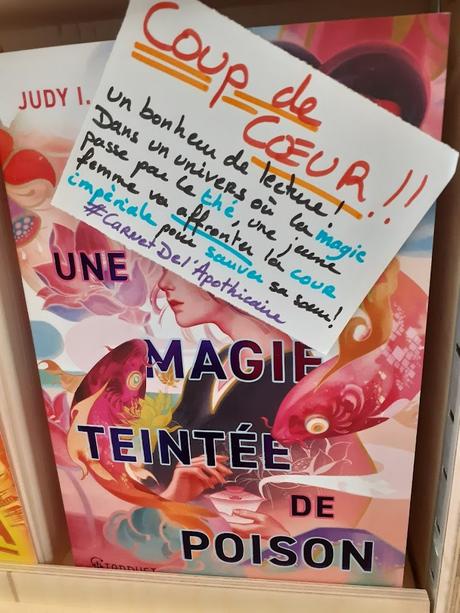 COUP de
CŒUR !!
un bonheur de lecture !
Dans un univers où la magie
passe par le thé, une jeune
femme va affronter la cour
impériale pour sauver sa sœur !
#CarnetDel'Apothicaire
JUDY I.
UNE
MAGIE
TEINTÉE
DE
POISON